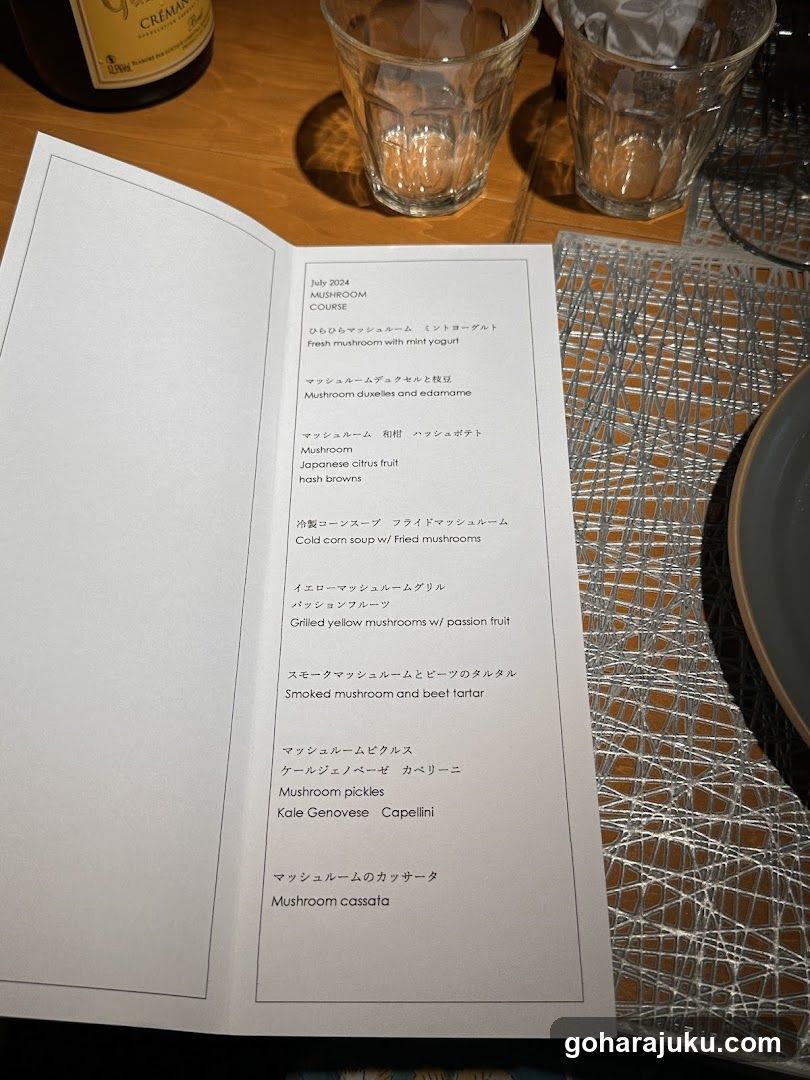 CRÉMAN
July 2024
MUSHROOM
COURSE
ひらひらマッシュルーム　ミントヨーグルト
Fresh mushroom with mint yogurt
マッシュルームデュクセルと枝豆
Mushroom duxelles and edamame
マッシュルーム　和柑　ハッシュポテト
Mushroom
Japanese citrus fruit
hash browns
冷製コーンスープ　フライドマッシュルーム
Cold corn soup w/ Fried mushrooms
イエローマッシュルームグリル
パッションフルーツ
Grilled yellow mushrooms w/ passion fruit
スモークマッシュルームとビーツのタルタル
Smoked mushroom and beet tartar
マッシュルームピクルス
ケールジェノベーゼ　カペリーニ
Mushroom pickles
Kale Genovese　Capellini
マッシュルームのカッサータ
Mushroom cassata
goharajuku.com